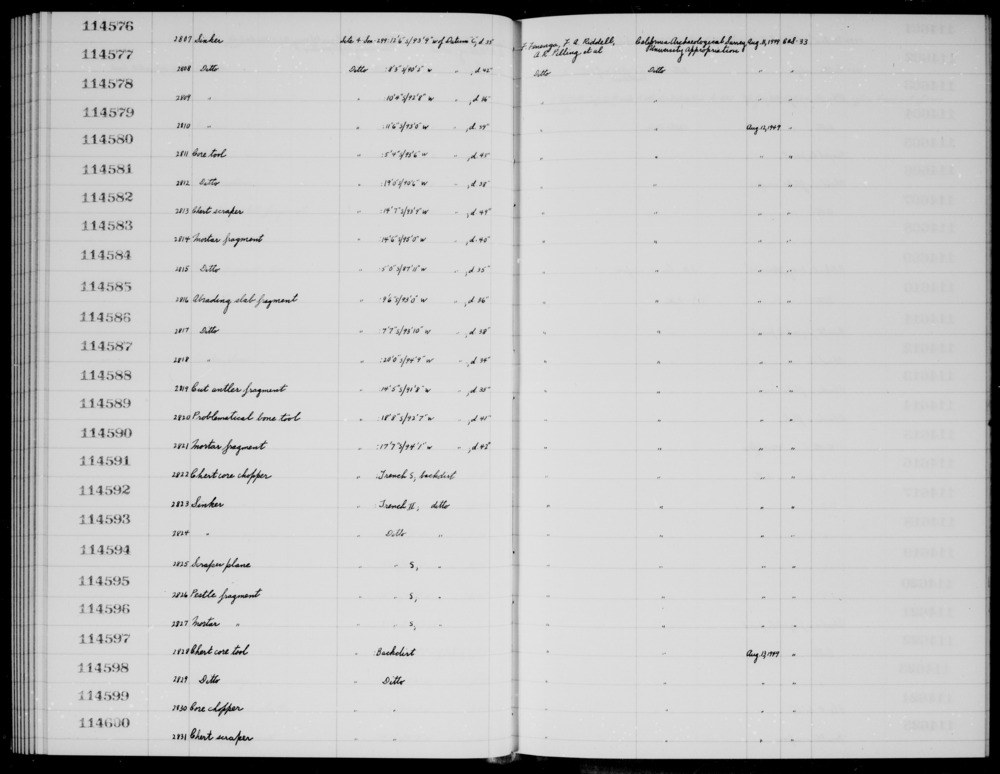 114576
2807 Sinker Site 4 Sta. 299: 12'6" S/93'9" W of Datum C, d 38" F. Fenenga, F. A. Riddell, A. R. Pilling, et al California Archaeological Survey Aug. 11, 1949 Acc. 33
University Appropriation
114577
2808 Ditto Ditto :8'5" S/90'5" W " , d 42" Ditto Ditto " "
114578
2809 " " :10'4" S/92'8" W " , d 36" " " " "
114579
2810 " " :11'6" S/93'0" W " , d 39" " " Aug 12, 1949 "
114580
2811 Core tool " :5'4" S/93'6" W " , d 45" " " " "
114581
2812 Ditto " :19'0" S/90'6" W " , d 38" " " " "
114582
2813 Chert scraper " :14'7" S/95'9" W " , d 49" " " " "
114583
2814 Mortar fragment " :14'6" S/95'0" W " , d 40" " " " "
114584
2815 Ditto " :5'0" S/87'11" W " , d 35" " " " "
114585
2816 Abrading slab fragment " :9'6" S/93'0" W " , d 36" " " " "
114586
2817 Ditto " :7'7" S/93'10" W " , d 38" " " " "
114587
2818 " " :20'0" S/94'9" W " , d 34" " " " "
114588
2819 Cut antler fragment " :14'5" S/91'8" W " , d 35" " " " "
114589
2820 Problematical bone tool " :18'8" S/92'7" W " , d 41" " " " "
114590
2821 Mortar fragment " :17'7" S/94'1" W " , d 45" " " " "
114591
2822 Chert core chopper " :Trench S, backdirt " " " "
114592
2823 Sinker " :Trench II, ditto " " " "
114593
2824 " " Ditto " " " " "
114594
2825 Scraper plane " " S, " " " " "
114595
2826 Pestle fragment " " S, " " " " "
114596
2827 Mortar " " " S, " " " " "
114597
2828 Chert core tool " :Backdirt " " Aug 17, 1949 "
114598
2829 Ditto " Ditto " " " "
114599
2830 Core chopper " " " " " "
114600
2831 Chert scraper " " " " " "